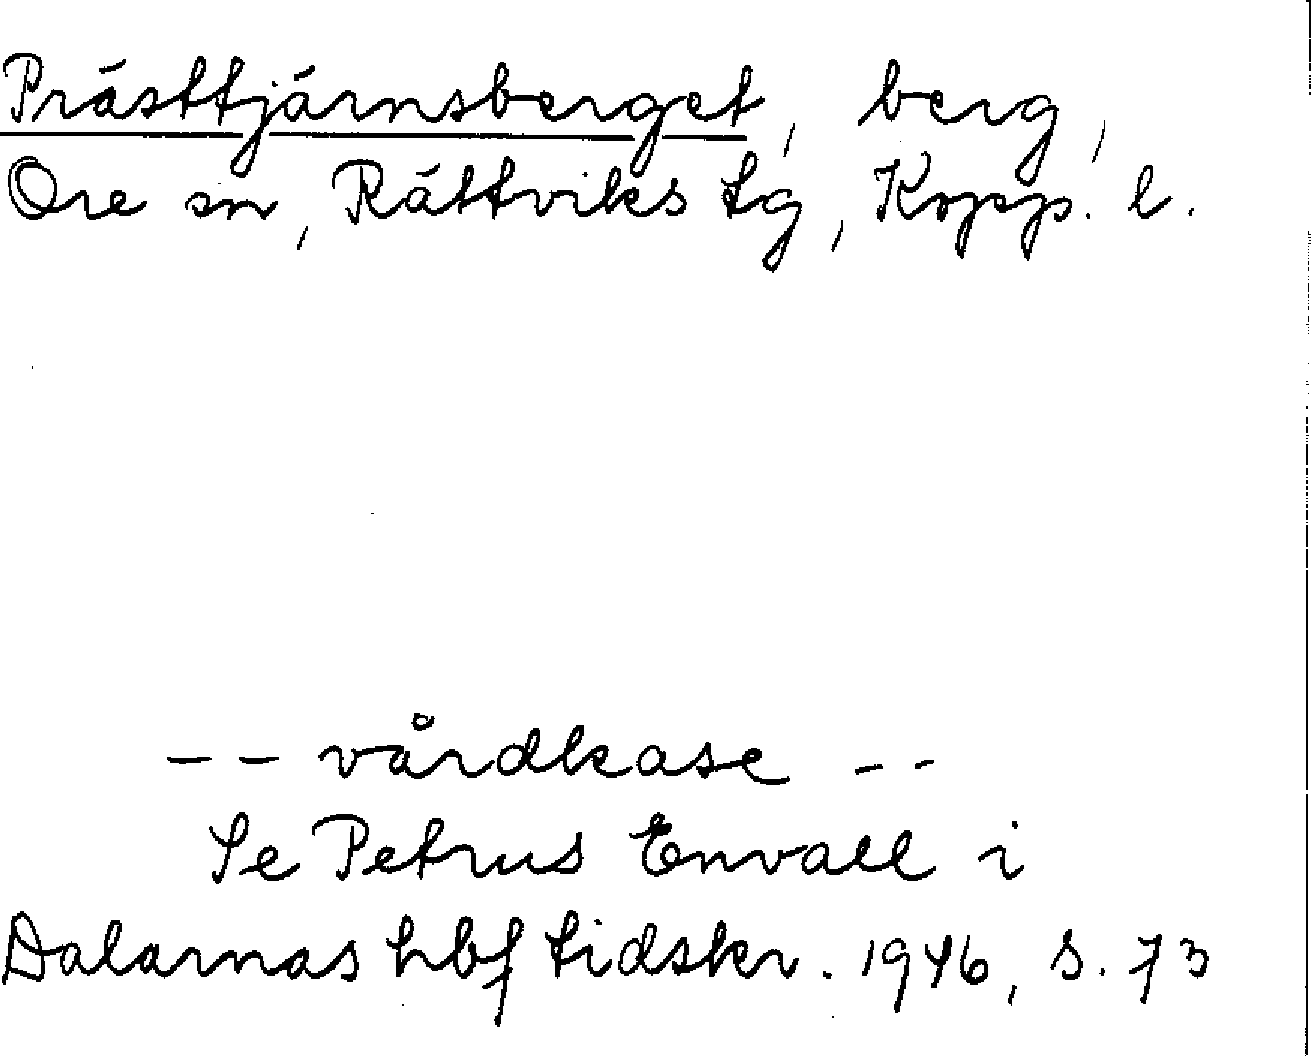 Prästtjärnsberget, berg,
Ore sn, Rättviks tg, Kopp. l.
-- vårdkase --
Se Petrus Envall i
Dalarnas hbf tidskr. 1946, s. 73